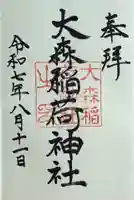 奉拝
大森稲荷神社
令和七年八月十一日
大森稲